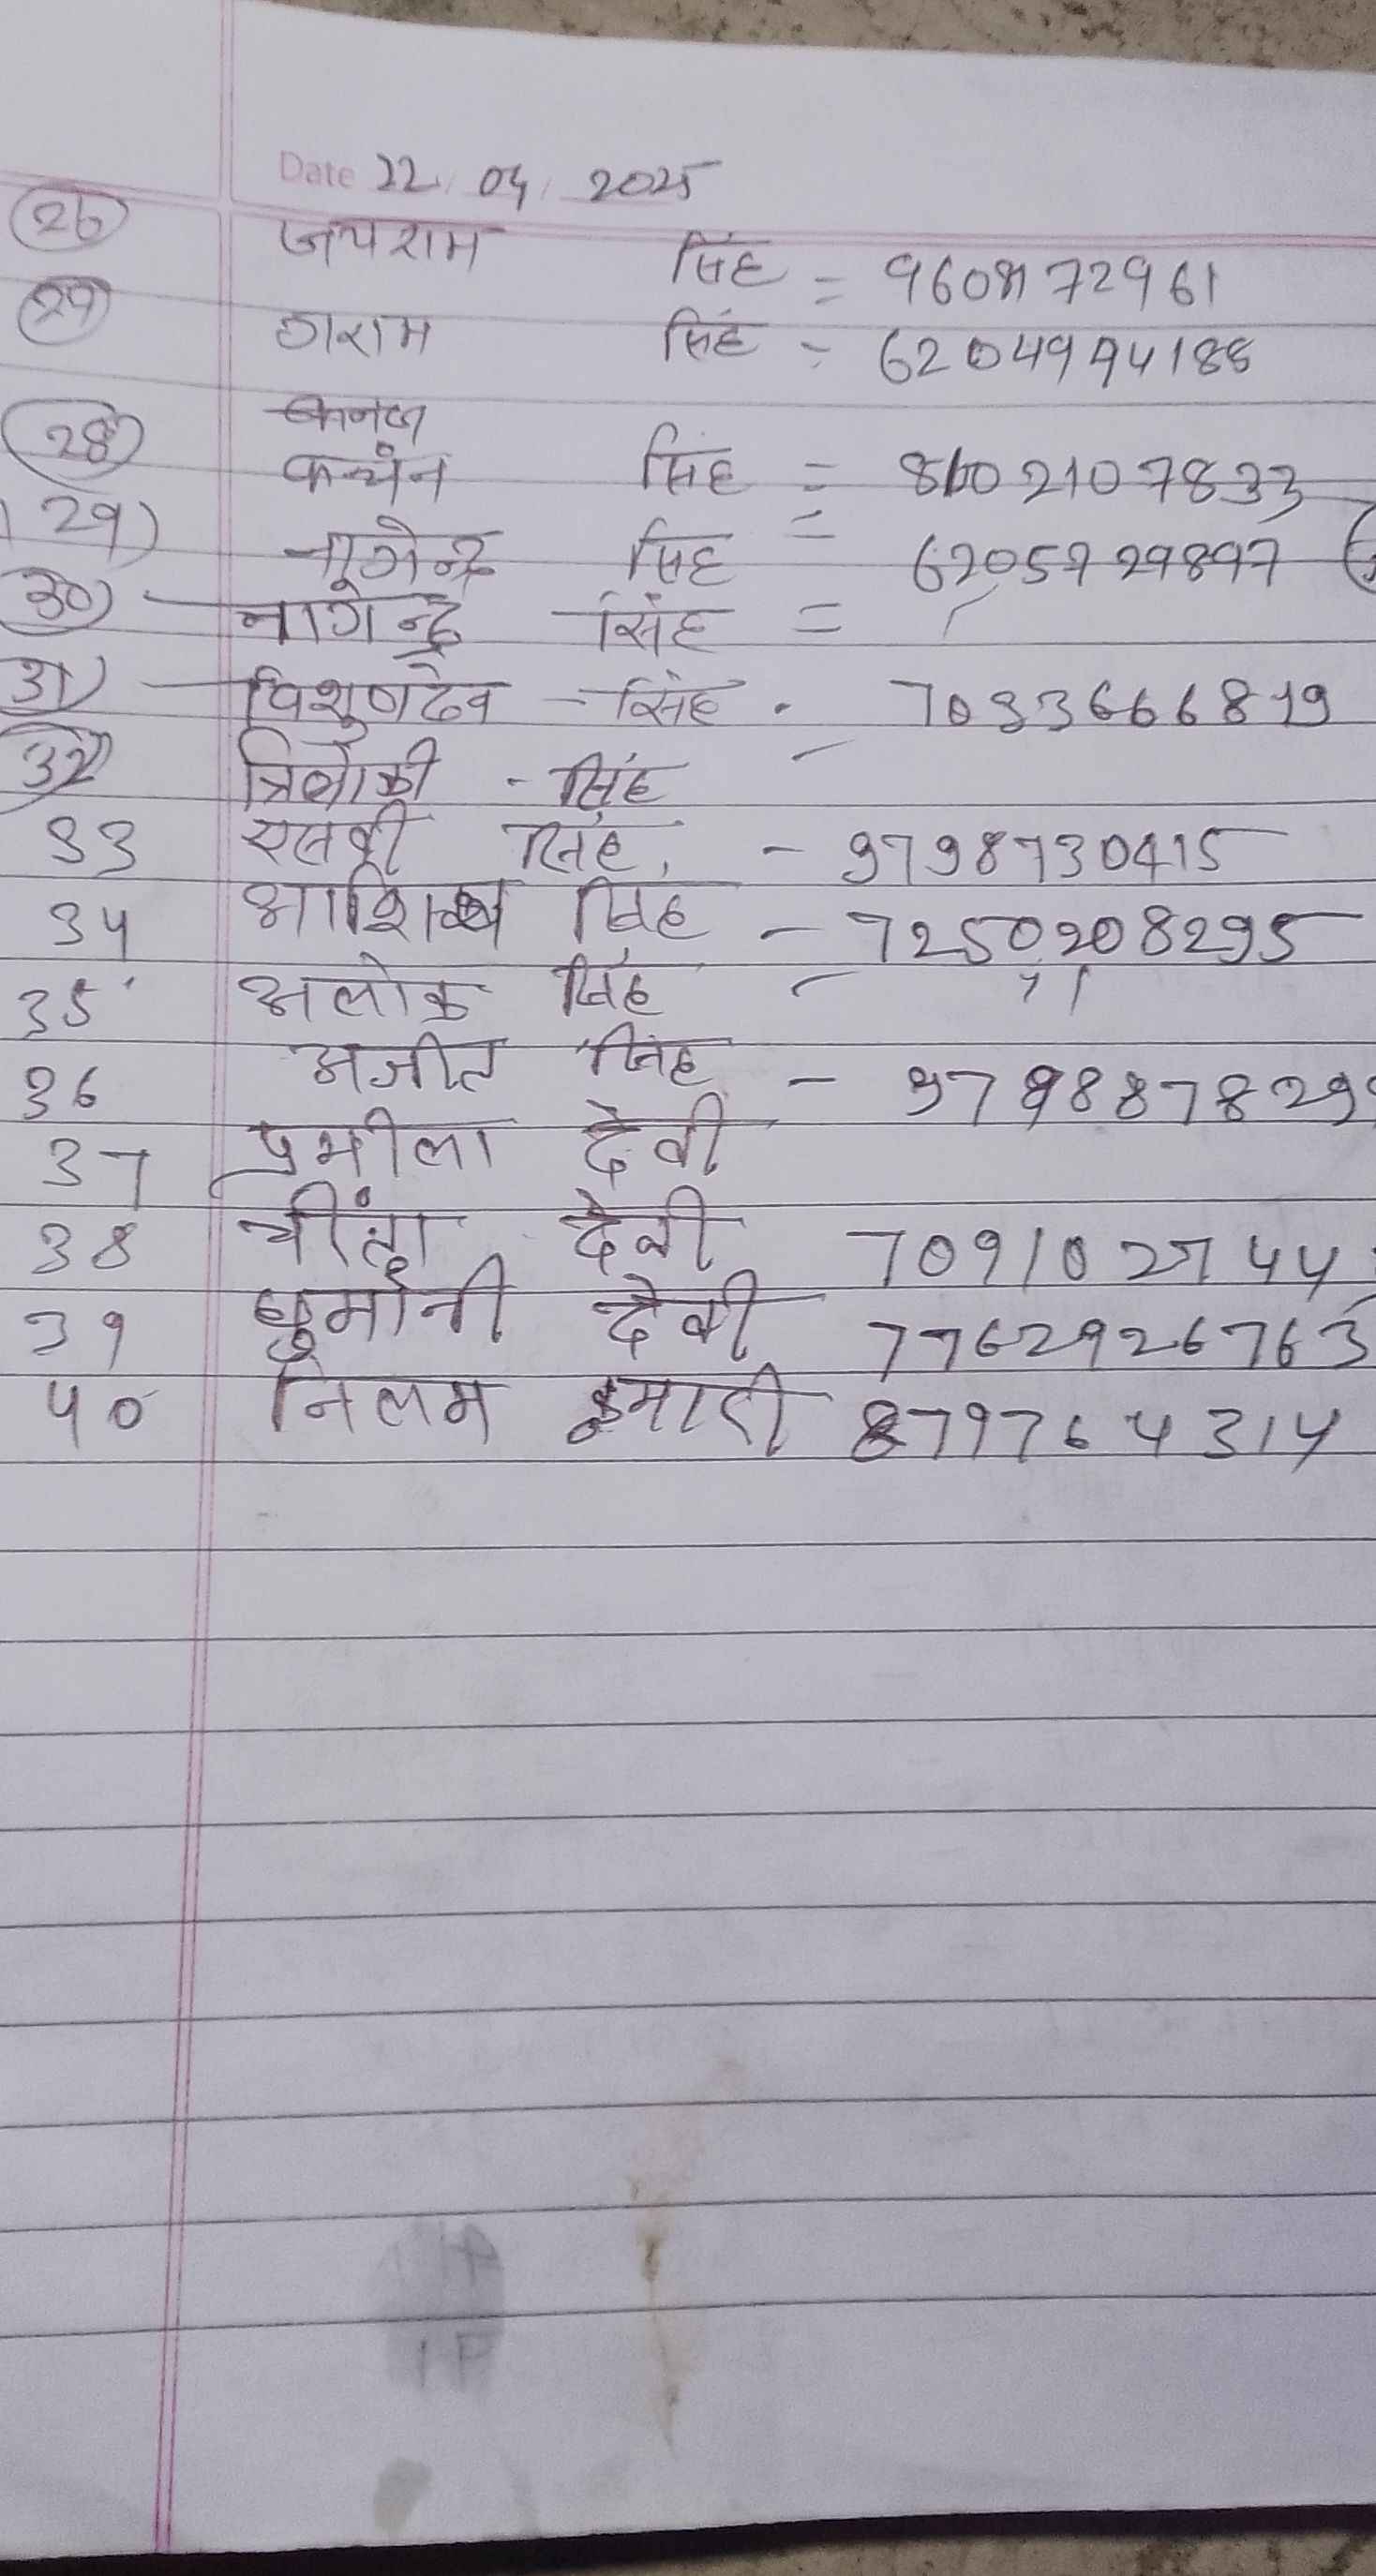 Date 22/04/2025
26 जयराम सिंह = 9608172961
27 गराम सिंह = 6204994188
कनज
28 कन्चंन सिंह = 8102107833
29) सिंह = 6205729897
30) नागेन्द्र सिंह =
31) विशुणदेव - सिंह . 7033666819
32) त्रिलोकी - सिंह
33 एसवी सिंह, - 9798730415
34 सिंह - 7250208295
35 अलोक सिंह - 11
36 अजीत सिंह - 979887829
37 प्रमीला देवी
38 चींता देवी 7091027744
39 छुमानी देवी 7762926763
40 निलम कुमारी 879764314